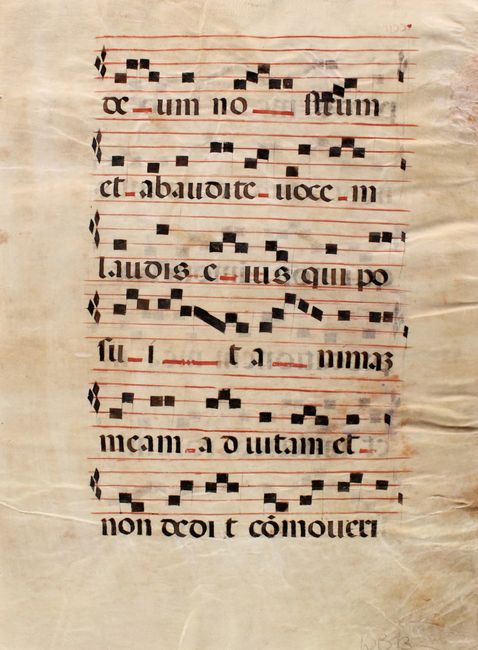 de-um no-strum
et-abaudite-uoce-m
laudis e-ius qui po
su-i-t a-nimaʒ
meam-a d uitam et-
non dedi t cōmoueri